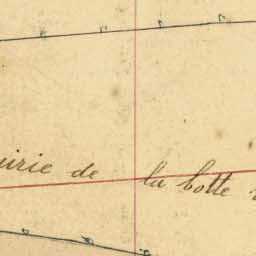 uirie de la botte